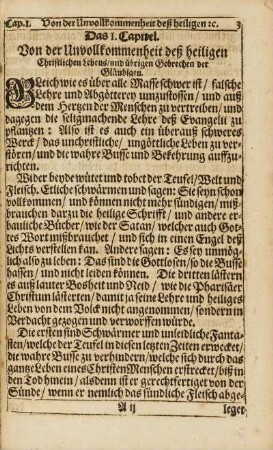 Cap.I. Von der Unvollkommenheit deß heiligen ꝛc. 3
Das I. Capitel.
Von der Unvollkommenheit deß heiligen
Christlichen Lebens/ und übrigen Gebrechen der
Gläubigen.
GLeich wie es über alle Masse schwer ist/ falsche
Lehre und Abgötterey umzustossen/ und auß
dem Hertzen der Menschen zu vertreiben/ und
dagegen die seligmachende Lehre deß Evangelii zu
pflantzen: Also ist es auch ein überauß schweres
Werck/ das unchristliche/ ungöttliche Leben zu ver-
stören/ und die wahre Busse und Bekehrung auffzu-
richten.
Wider beyde wütet und tobet der Teufel/ Welt und
Fleisch. Etliche schwärmen und sagen: Sie seyn schon
vollkommen/ und können nicht mehr sündigen/ miß-
brauchen darzu die heilige Schrifft/ und andere er-
bauliche Bücher/ wie der Satan/ welcher auch Got-
tes Wort mißbrauchet/ und sich in einen Engel deß
Lichts verstellen kan. Andere sagen: Es sey unmög-
lich also zu leben: Das sind die Gottlosen/ so die Busse
hassen/ und nicht leiden können. Die dritten lästern
es auß lauter Bosheit und Neid/ wie die Phariseer
Christum lästerten/ damit ja seine Lehre und heiliges
Leben von dem Volck nicht angenommen/ sondern in
Verdacht gezogen und verworffen würde.
Die ersten sind Schwärmer und unleidliche Fanta-
sten/ welche der Teufel in diesen letzten Zeiten erwecket/
die wahre Busse zu verhindern/ welche sich durch das
gantze Leben eines Christen Menschen erstrecket/ biß in
den Tod hinein/ alsdenn ist er gerechtfertiget von der
Sünde/ wenn er nemlich das sündliche Fleisch abge-
A ij leget